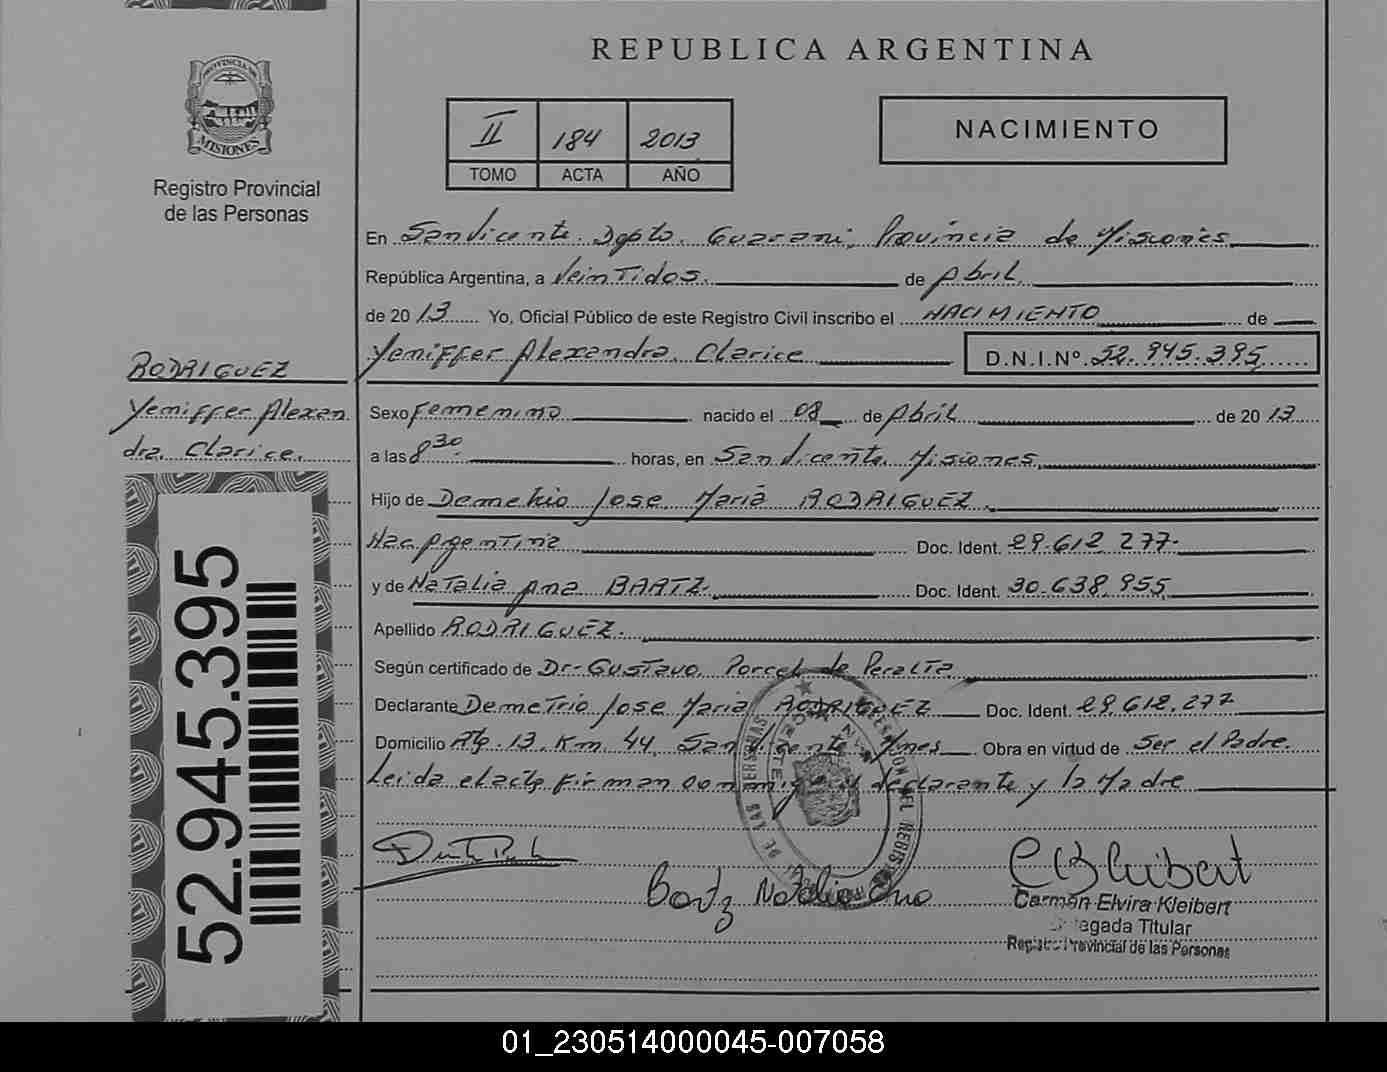 REPUBLICA ARGENTINA
PROVINCIA DE
MISIONES
Registro Provincial
de las Personas
II 184 2013
TOMO ACTA AÑO
NACIMIENTO
En San Vicente. Dpto. Guarani, Provincia de Misiones
República Argentina, a Veintidos. de Abril.
de 2013 Yo, Oficial Público de este Registro Civil inscribo el NACIMIENTO de
Yemiffer Alexandra Clarice D.N.I.Nº. 52.945.395
RODRIGUEZ
Yemiffer Alexan
dra. Clarice.
Sexo Femenino nacido el 08 de Abril de 2013
a las 8 30 horas, en San Vicente. Misiones.
Hijo de Demetrio Jose Maria RODRIGUEZ.
Nac. Argentina Doc. Ident. 29.612.277.
y de Natalia Ana BARTZ. Doc. Ident. 30.638.955
Apellido RODRIGUEZ.
Según certificado de Dr. Gustavo Porcel de Peralta
Declarante Demetrio Jose Maria RODRIGUEZ Doc. Ident. 29.612.277
Domicilio Rta. 13. Km 44. San Vicente Mnes Obra en virtud de Ser el Padre.
Leida el acta firman conmigo el declarante y la Madre
52.945.395
Bartz Natalia Ana
C B Kleibert
Carmen Elvira Kleibert
Titular
Registro Provincial de las Personas
01_230514000045-007058